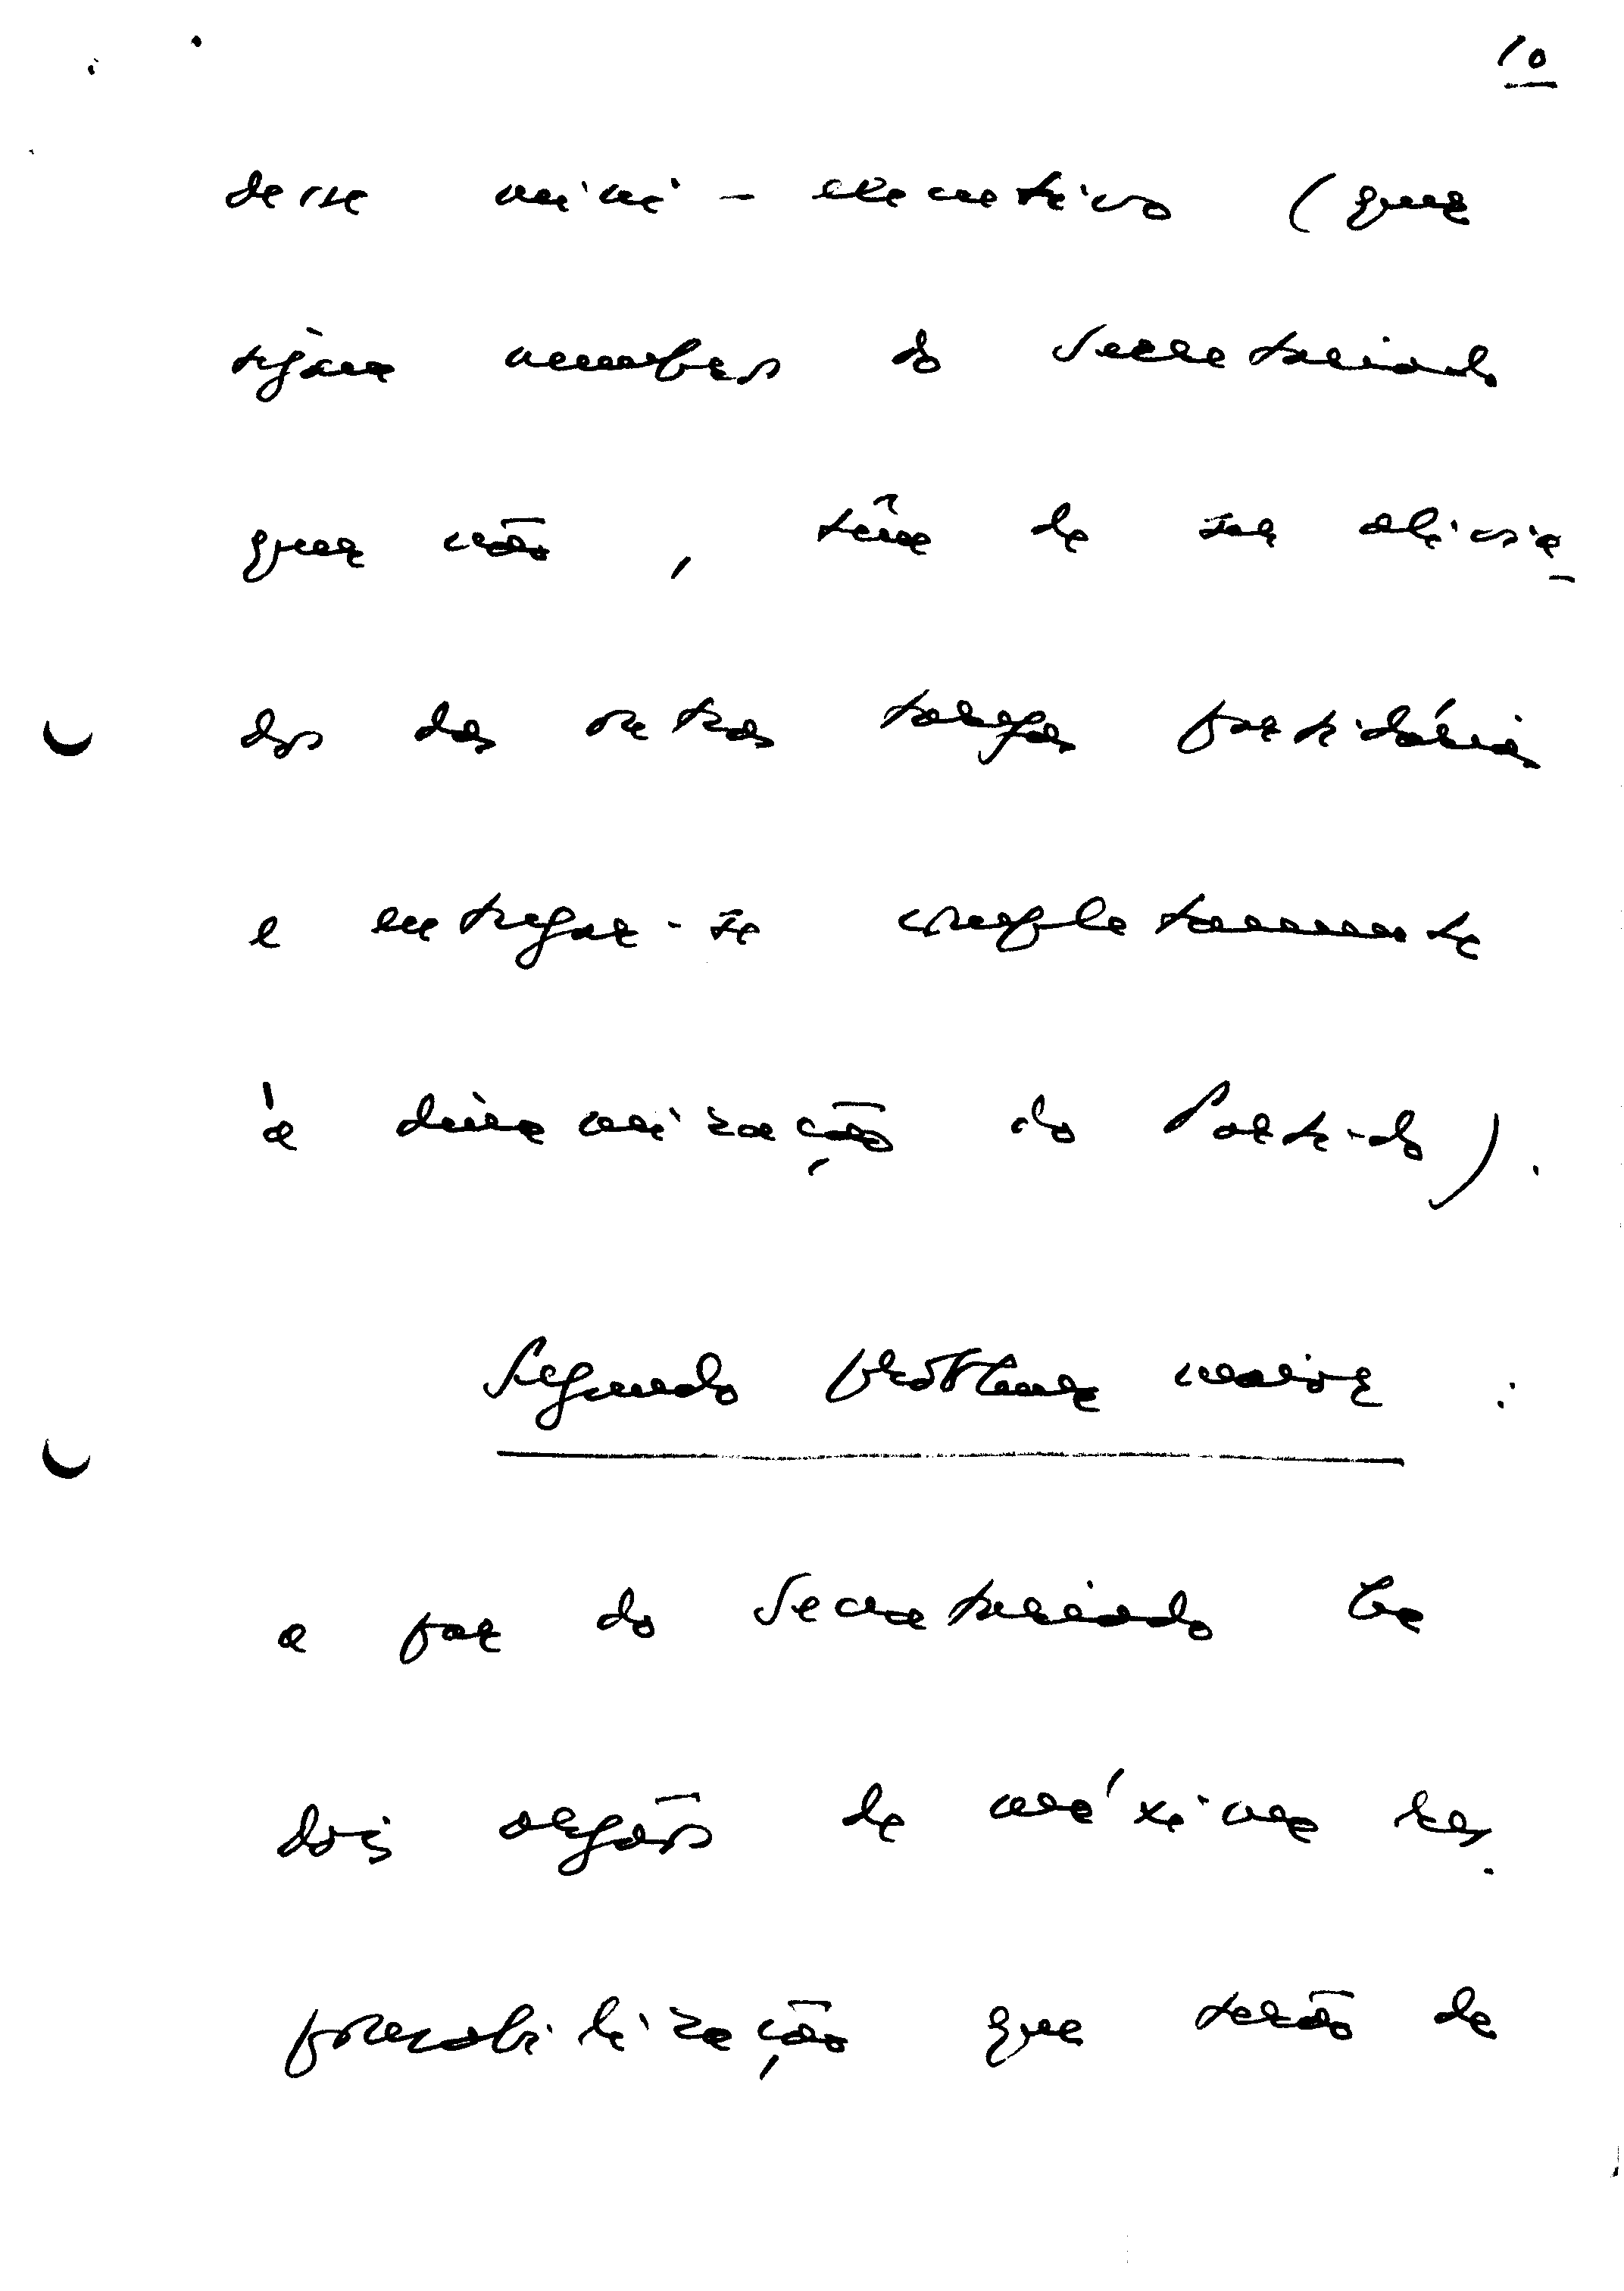 10
desse mini-executivo (quer
sejam membros do Secretariado
quer não, têm de ser alivia-
dos das outras tarefas partidárias
e entregar-se completamente
à dinamização do Partido).
Segundo problema maior :
a par do Secretariado há
dois orgãos de máxima res-
ponsabilização que terão de